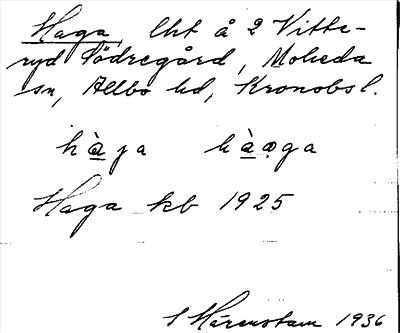 Haga, lht å 2 Vitte-
ryd Södregård, Moheda
sn, Allbo hd, Kronobs l.
hàga hàǫga
Haga kb 1925
S Hårenstam 1936